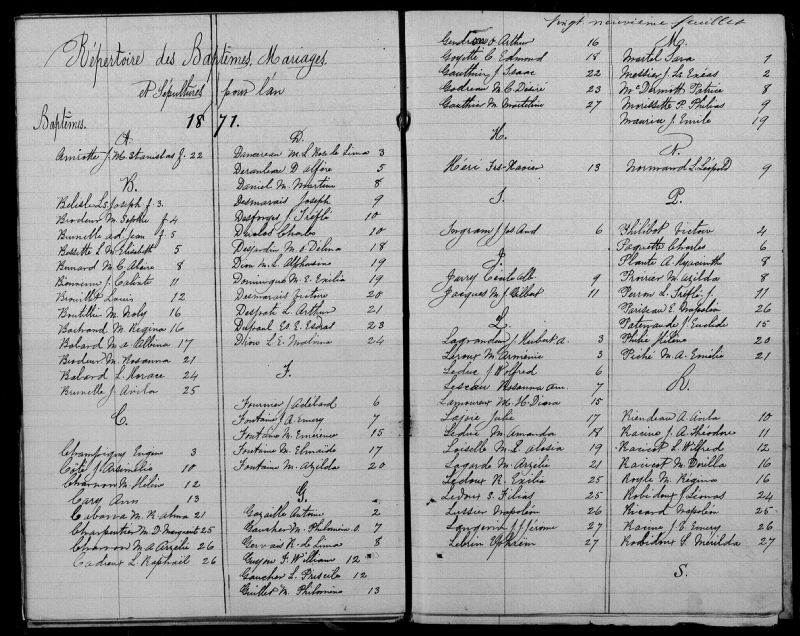 Répertoire des Baptêmes, Mariages,
et Sépultures pour l'an
Baptêmes. 1871.
A.
Amiotte J. M. Stanislas f. 22
B.
Belisle Ls Joseph f. 3.
Brodeur M. Sophie f 4
Brunelle ad. jean f 5
Bessette L. M. Elisabeth 5
Benard M. C. 8
Bienvenu J. Calixte 11
Brouillet Louis 12
Boutillie M. Noly 16
Bertrand M. Régina 16
Bolard M. a Albina 17
Brodeur M. Rosanna 21
Bolard L. Horace 24
Brunelle J. Avila 25
C.
Champigny Eugène 3
Coté J. Arsimélie 10
Charron M. Helène 12
Cary Ann 13
Cabana M. R. alma 21
Charpentier M. D. Marguerite 25
Charron M. a Azélie 26
Cadieux L. Raphaël 26
D.
Dancereau M. L. Rose de Lima 3
Deranleau D. alfére 5
Daniel M. Martine 8
Desmarais Joseph 9
Desforges J Trefflé 10
Duclos Charles 10
Desjardin M. o Délina 18
Dion M. L. Alphosine 19
Domingue M. E. Exilia 19
Desmarais Victore 20
Despoti L. Arthur 21
Dupaul Es. E. Esdras 23
Dion L. E. Malvina 24
F.
Fournier J Adélard 6
Fontaine J A. Emery 7
Fontaine M. Emérience 15
Fontaine M. Elmaide 17
Fontaine M. Azilda 20
G.
Gazaille Antoine 2
Gaucher M. Philomène O. 7
Gervais R. de Lima 8
Guyon F. William 12
Gaucher L. Priscile 12
Guillet M. Philomène 13
vingt neuvieme feuillet
Gendreau o Arthur 16
Goyette C Edmond 18
Gauthier J Isaac 22
Godreau M. C. Désiré 23
Gauthier M. 27
H.
Héri Frs-Xavier 13
I.
Ingram J Jos And 6
J.
Jerry Cécile Alb 9
Jacques M. J. Albert 11
L.
Lagrandeur J Hubert A. 3
Leroux M. Arménie 3
Leduc J Wolfred 6
Rosanna Ann. 7
Lamoureux M. H. Diana 15
Lapré Julie 17
Leduc M. Amanda 18
Loiselle M. L. alosia 19
Lagarde M. Azélie 21
Ledoux R. Exilia 25
Ledoux S. Filias 25
Lussier Napoléon 26
Langevin J. J. Jérome 27
Lebrun Ephrem 27
M.
Martel Sara 1
Messier J. Ls Exéas 2
McDermott Patrice 8
Morissette P. Philias 9
Maurice J. Emile 19
N.
Normand L. Léopold 9
P.
Philibot Victoire 4
Paquette Charles 6
Plante A. Hyacinthe 8
Poirier M. azilda 8
Perron L. Trefflé f. 11
Pariseau E. Napoléon 26
Patenaude J. Euclide 15
Philie Hélène 20
Piché M. A. Emélie 21
R.
Riendeau A. avila 10
Racine J. A. Théodore 11
Raucot L. Wilfred 12
Raucot M. Dorilla 16
Royle M. Régina 16
Robidoux J Léonas 24
Ricard Napoléon 25
Racine J. E. Emery 26
Robidoux S. Merilda 27
S.